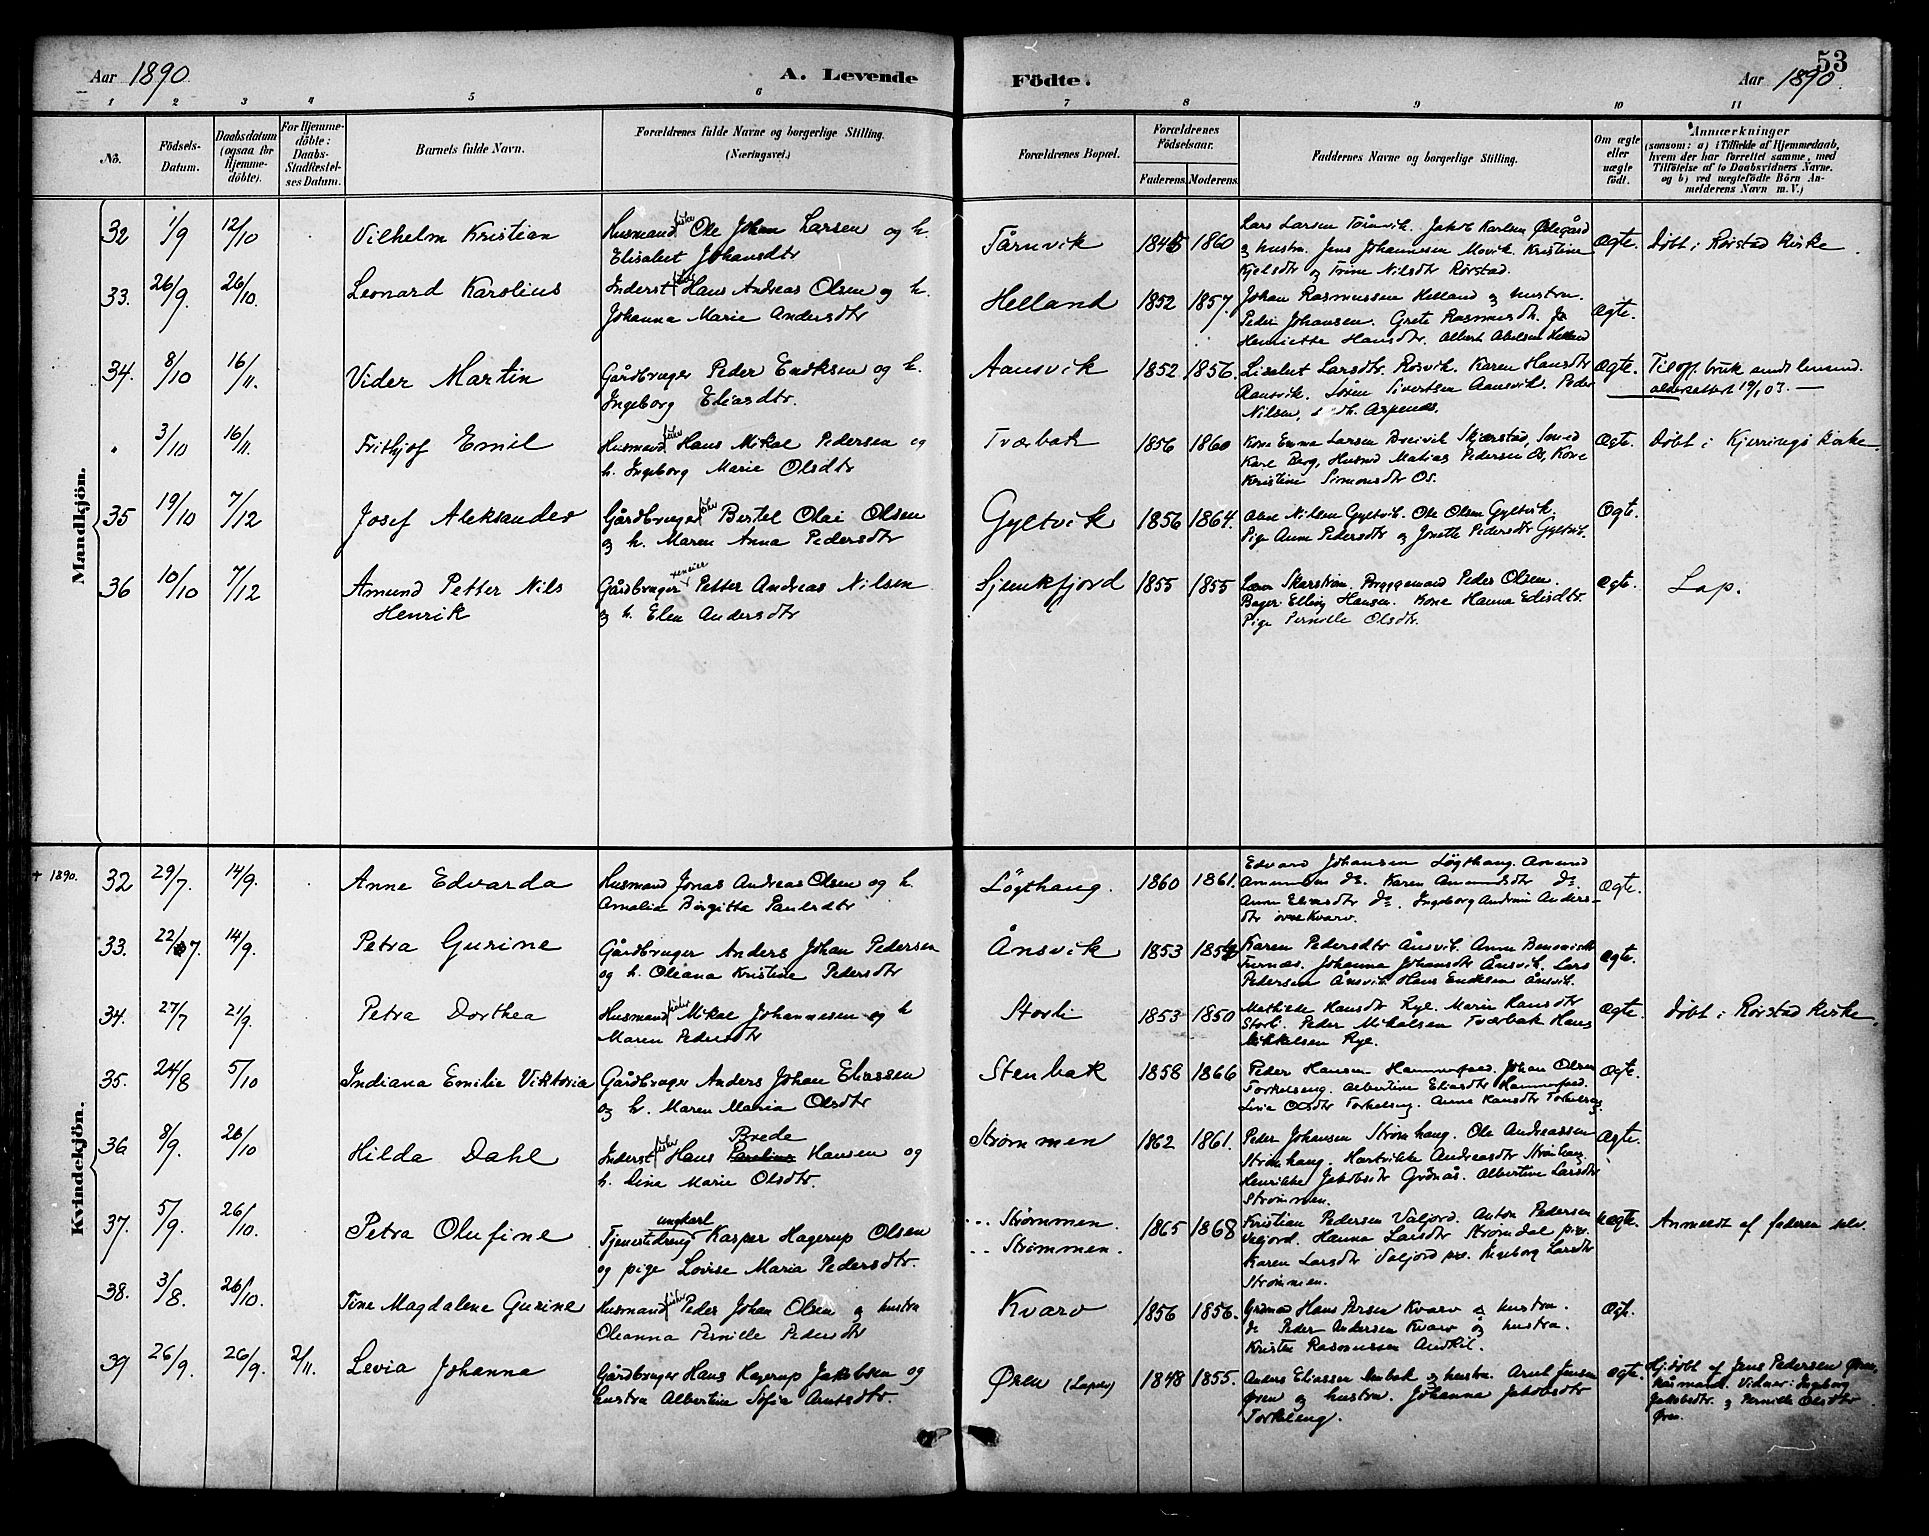 Aar 1890. A. Levende Födte. Aar 1890. 53
1 2 3 4 5 6 7 8 9 10 11
No. Födsels-Datum. Daabsdatum (ogsaa for Hjemmedöbte). For Hjemmedöbte: Daabs-Stadfæstelses Datum. Barnets fulde Navn. Forældrenes fulde Navne og borgerlige Stilling. (Næringsvei.) Forældrenes Bopæl. Forældrenes Födselsaar. Faderens. Moderens. Faddernes Navne og borgerlige Stilling. Om ægte eller uægte födt. Anmærkninger (saasom: a) i Tilfælde af Hjemmedaab, hvem der har forrettet samme, med Tilföielse af to Daabsvidners Navne, og b) ved uægtefödte Börn Anmelderens Navn m. V.)
Mandkjön.
32 1/9 12/10 Vilhelm Kristian Husmand fisker Ole Johan Larsen og h. Tårnvik 1845 1860 Lars Larsen Tårnvik. Jakob Karlsen Ødegård Ægte. Døbt i Rørstad kirke
Elisabet Johansdtr og hustru. Jens Johannesen Movik. Kristine
Kjelsdtr og Trine Nilsdtr Rørstad.
33. 26/9 26/10. Leonard Karolius Inderst fisker Hans Andreas Olsen og h. Helland 1852 1857. Johan Rasmussen Helland og hustru. Ægte.
Johanna Marie Andersdtr Peder Johansen. Grete Rasmusdtr.
Henriette Hansdtr. Albert Abelsen Helland
34. 8/10 16/11. Vider Martin Gårdbruger Peder Endksen og h. Aansvik 1852 1856. Lisabet Larsdtr. Rosvik. Karen Hansdtr Ægte.
Ingeborg Eliasdtr. Aansvik. Søren Sivertsen Aansvik. Peder alderattest 19/1 03. —
Nilsen, Aspenes.
3/10 16/11. Frithjof Emil Husmand fisker Hans Mikal Pedersen og Tværbak 1856 1860 Kone Emma Larsen Breivik Skjærstad, Smed Ægte. Døbt i Kjerringø kirke.
h. Ingeborg Marie Olsdtr Karl Berg, Husmd Matias Pedersen Os, Kone
Kristine Simonsdtr Os.
35 19/10 7/12 Josef Aleksander Gårdbruger fisker Bertel Olai Olsen Gyltvik 1856 1864. Nilsen Gyltvik. Ole Olsen Gyltvik. Ægt.
og h. Maren Anna Pedersdtr Pige Anne Pedersdtr og Jonette Pedersdtr Gyltvik.
36 10/10 7/12 Amund Petter Nils Gårdbruger Petter Andreas Nilsen Sjunkfjord 1855 1855 Lærer Skarstrøm, Bryggemand Peder Olsen. Ægte. Lap.
Henrik og h. Elen Andersdtr Bager Elling Hansen. Kone Hanna Elisdtr.
Pige Pernille Olsdtr.
Kvindekjön.
+ 1890. 32 29/7. 14/9. Anne Edvarda Husmand Jonas Andreas Olsen og h. Løgthaug. 1860 1861. Edvard Johansen Løgthaug. Amund Ægte.
Amalia Birgitta Paulsdtr Amundsen do. Karen Amundsdtr do.
Anne Eliasdtr do. Ingeborg Andrine Anders-
dtr øvre Kvarv.
33. 22/7. 14/9. Petra Gurine Gårdbruger Anders Johan Pedersen Ånsvik 1853 1854 Karen Pedersdtr Ånsvik. Anne Ægte.
og h. Oliana Kristine Pedersdtr Furnæs. Johanna Johansdtr Ånsvik. Lars
Pedersen Ånsvik Hans Endksen Ånsvik.
34. 27/7 21/9. Petra Dorthea Husmand fisker Mikal Johannesen og h Storli 1853 1850 Mathilde Hansdtr Rye. Marie Hansdtr Ægte. Døbt i Rørstad kirke.
Maren Pedersdtr Storli. Peder Mikalsen Tværbak Hans
Mikkelsen Rye.
35. 24/8 5/10 Indiana Emilie Viktoria Gårdbruger Anders Johan Eliassen Stenbak 1858 1866 Peder Hansen Hammerfald. Johan Olsen Ægte.
og h. Maren Maria Olsdtr Torkelseng. Albertine Eliasdtr Hammerfald.
Lina Olsdtr Torkelseng. Anna Hansdtr Torkelseng.
36 8/9. 26/10 Hilda Dahl Inderst fisker Hans Brede Hansen og Strømmen 1862 1861. Peder Johansen Strømhaug. Ole Andreassen Ægte.
h. Lina Marie Olsdtr. Strømhaug. Hartvikke Andreasdtr Strømhaug.
Henrikke Jakobsdtr Grønås. Albertine Larsdtr
Strømmen.
37. 5/9. 26/10. Petra Olufine Tjenestedreng ungkarl Kasper Hagerup Olsen Strømmen. 1865 1868 Kristian Pedersen Valjord. Anton Pedersen uægte. Anmeldt af faderen selv.
og pige Lovise Maria Pedersdtr. Strømmen. Valjord. Hanna Larsdtr Strømdal pige.
Karen Larsdtr Valjord pige. Ingeborg Larsdtr
Strømmen.
38. 3/8. 26/10. Tine Magdalene Gurine Husmand fisker Peder Johan Olsen og hustru Kvarv 1856 1856. Grdmd Hans Persen Kvarv og hustru. Ægt.
Oleanna Pernille Pedersdtr do Peder Andersen Kvarv og hustru.
Kristen Rasmussen Andkil.
39 26/9. 26/9. 2/11. Levia Johanna Gårdbruger Hans Hagerup Jakobsen og Øren (Lapver) 1848 1855. Anders Eliassen Stenbak og hustru. Arnt Jensen Ægte. Hj.døbt af Jens Pedersen Øren,
hustru Albertine Sofia Arntsdtr. Øren og hustru. Johanna Jakobsdtr Vidner: Ingeborg
Torkelseng. Jakobsdtr. og Pernille Olsdtr
Øren.